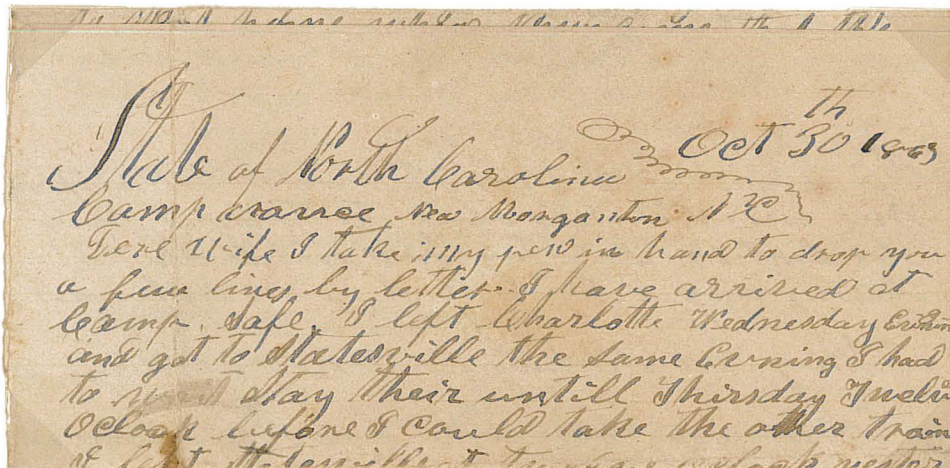 Oct 30th 1863
State of North Carolina
Camp vance Near Morganton N C
Dere Wife I take my pen in hand to drop you
a few lines by letter I have arrived at
Camp Safe. I left Charlotte Wednesday Evening
and got to Statesville the same Evning I had
to Stay their untill Thirsday Twelv
Oclock before I could take the other train
I left